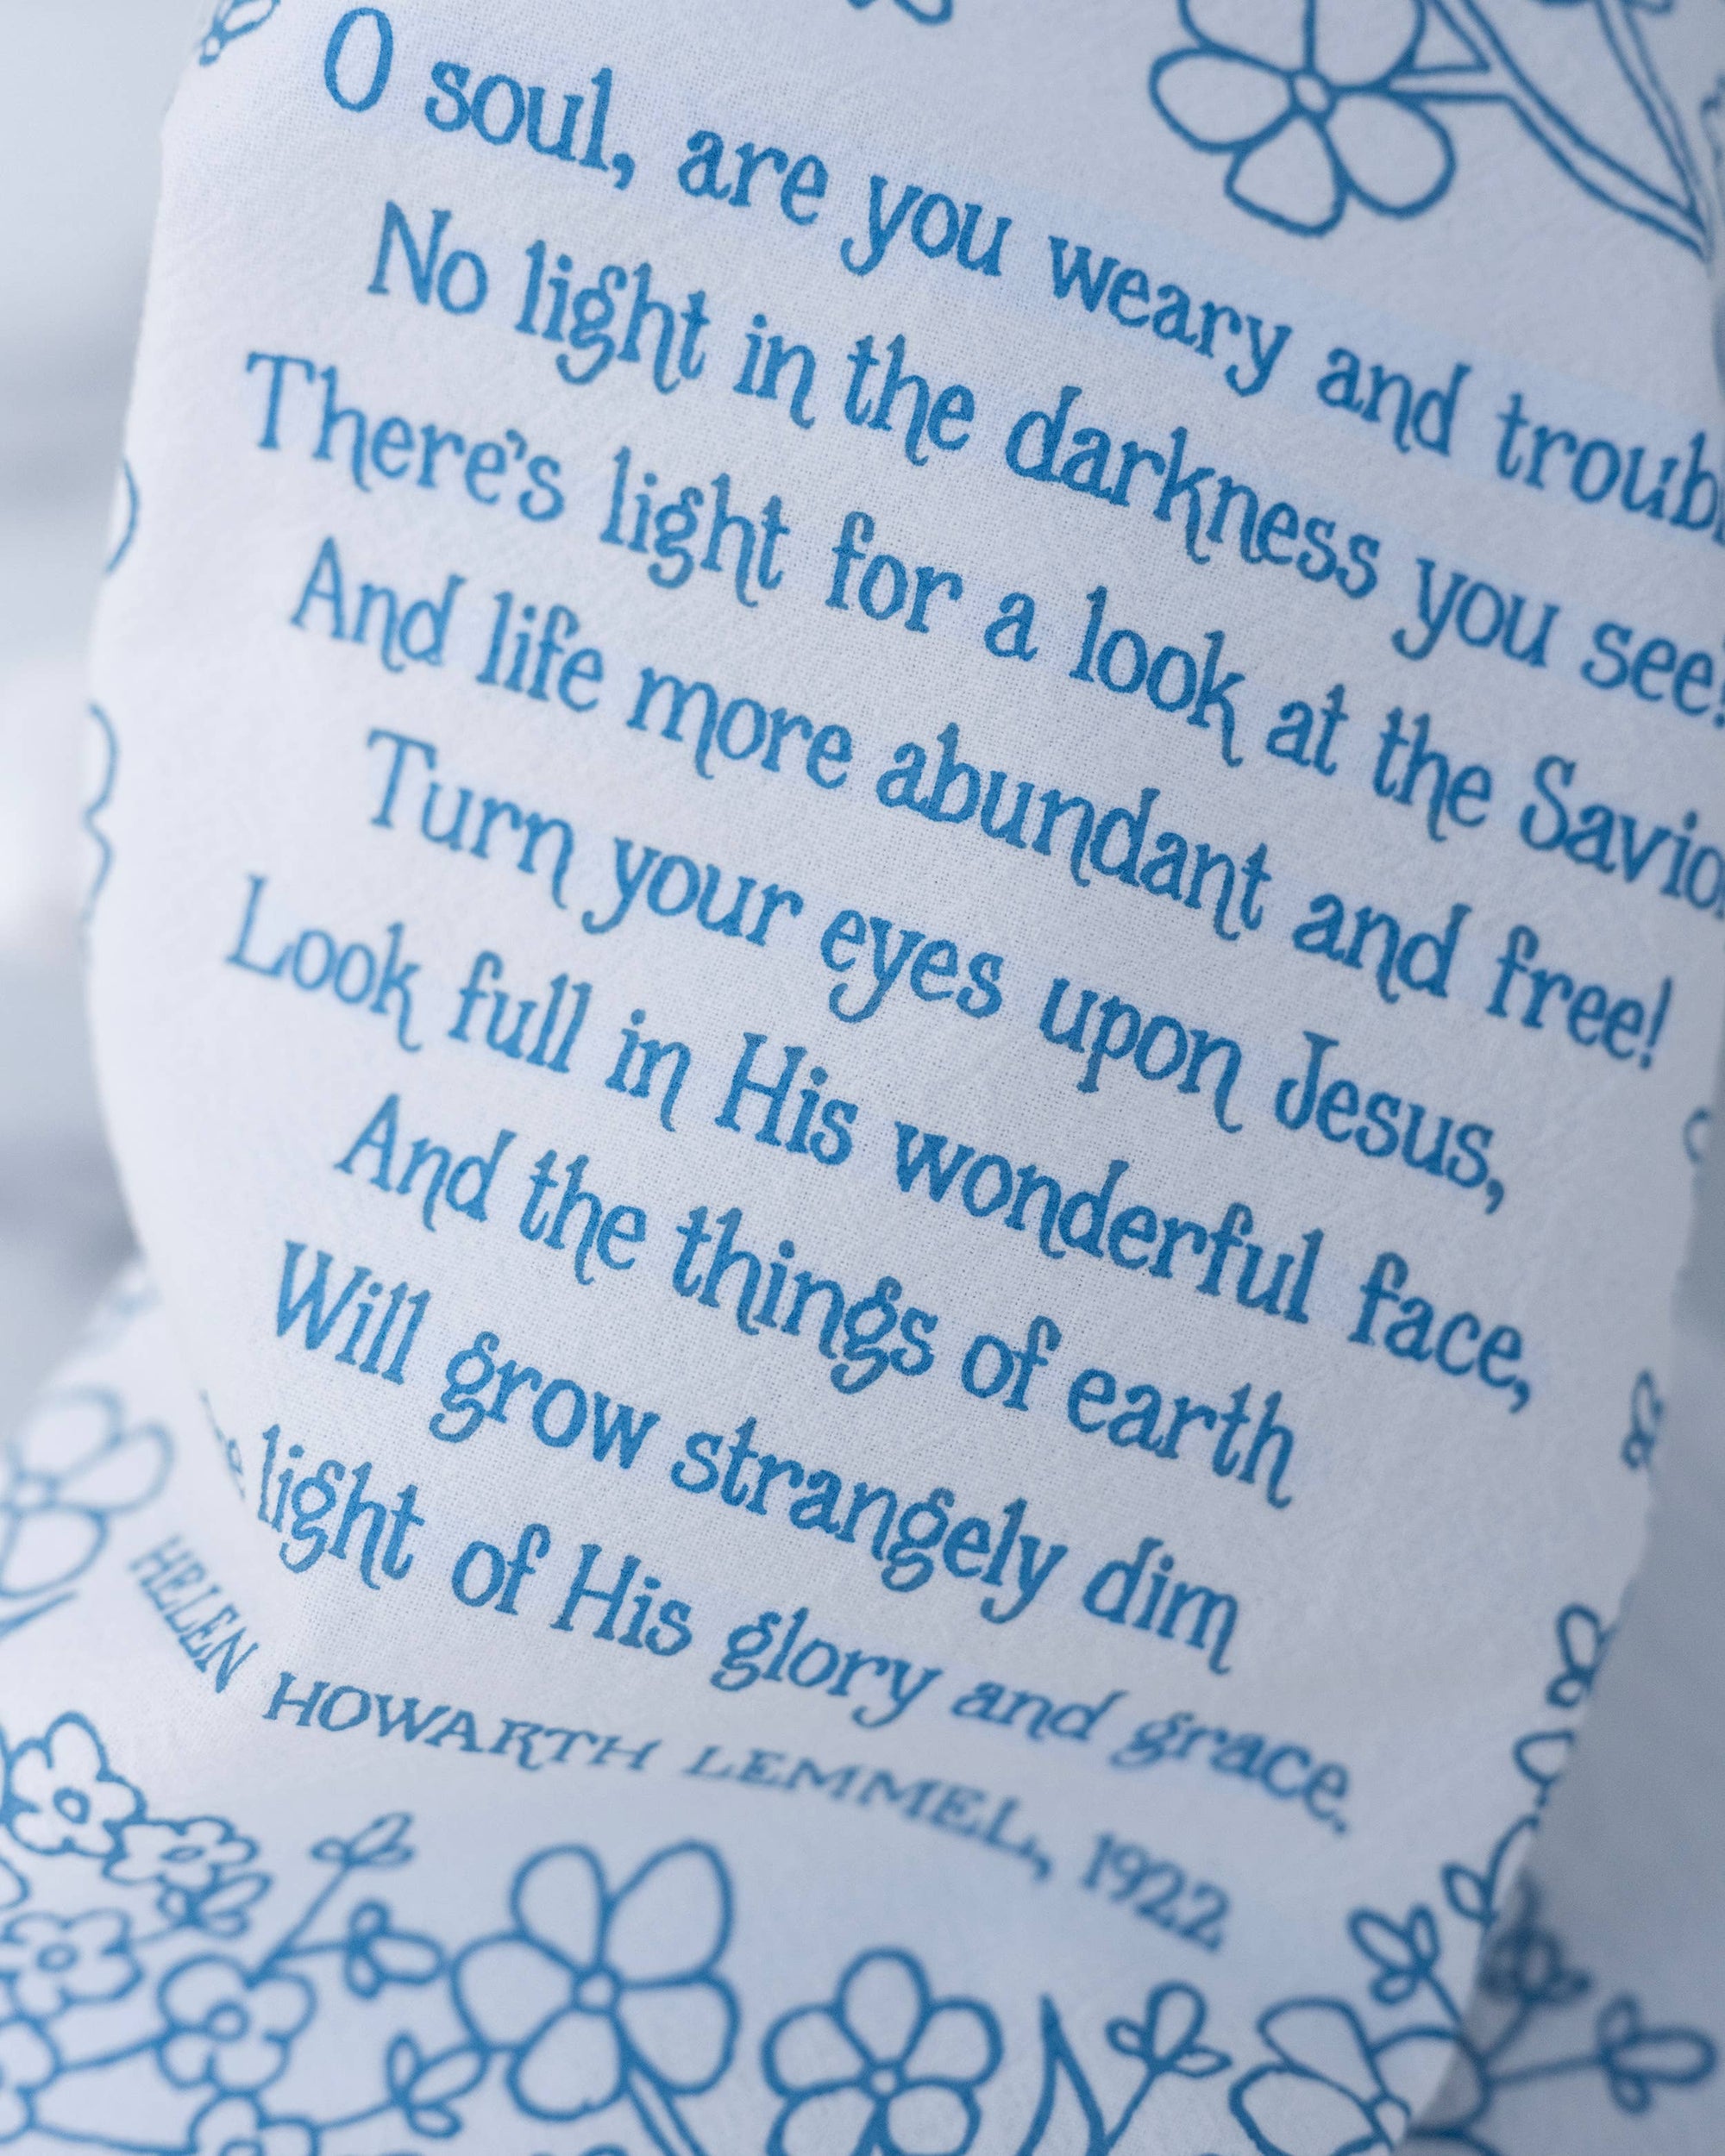 O soul, are you weary and troubl
No light in the darkness you see!
There's light for a look at the Savio
And life more abundant and free!
Turn your eyes upon Jesus,
Look full in His wonderful face,
And the things of earth
Will grow strangely dim
light of His glory and grace.
HELEN HOWARTH LEMMEL, 1922